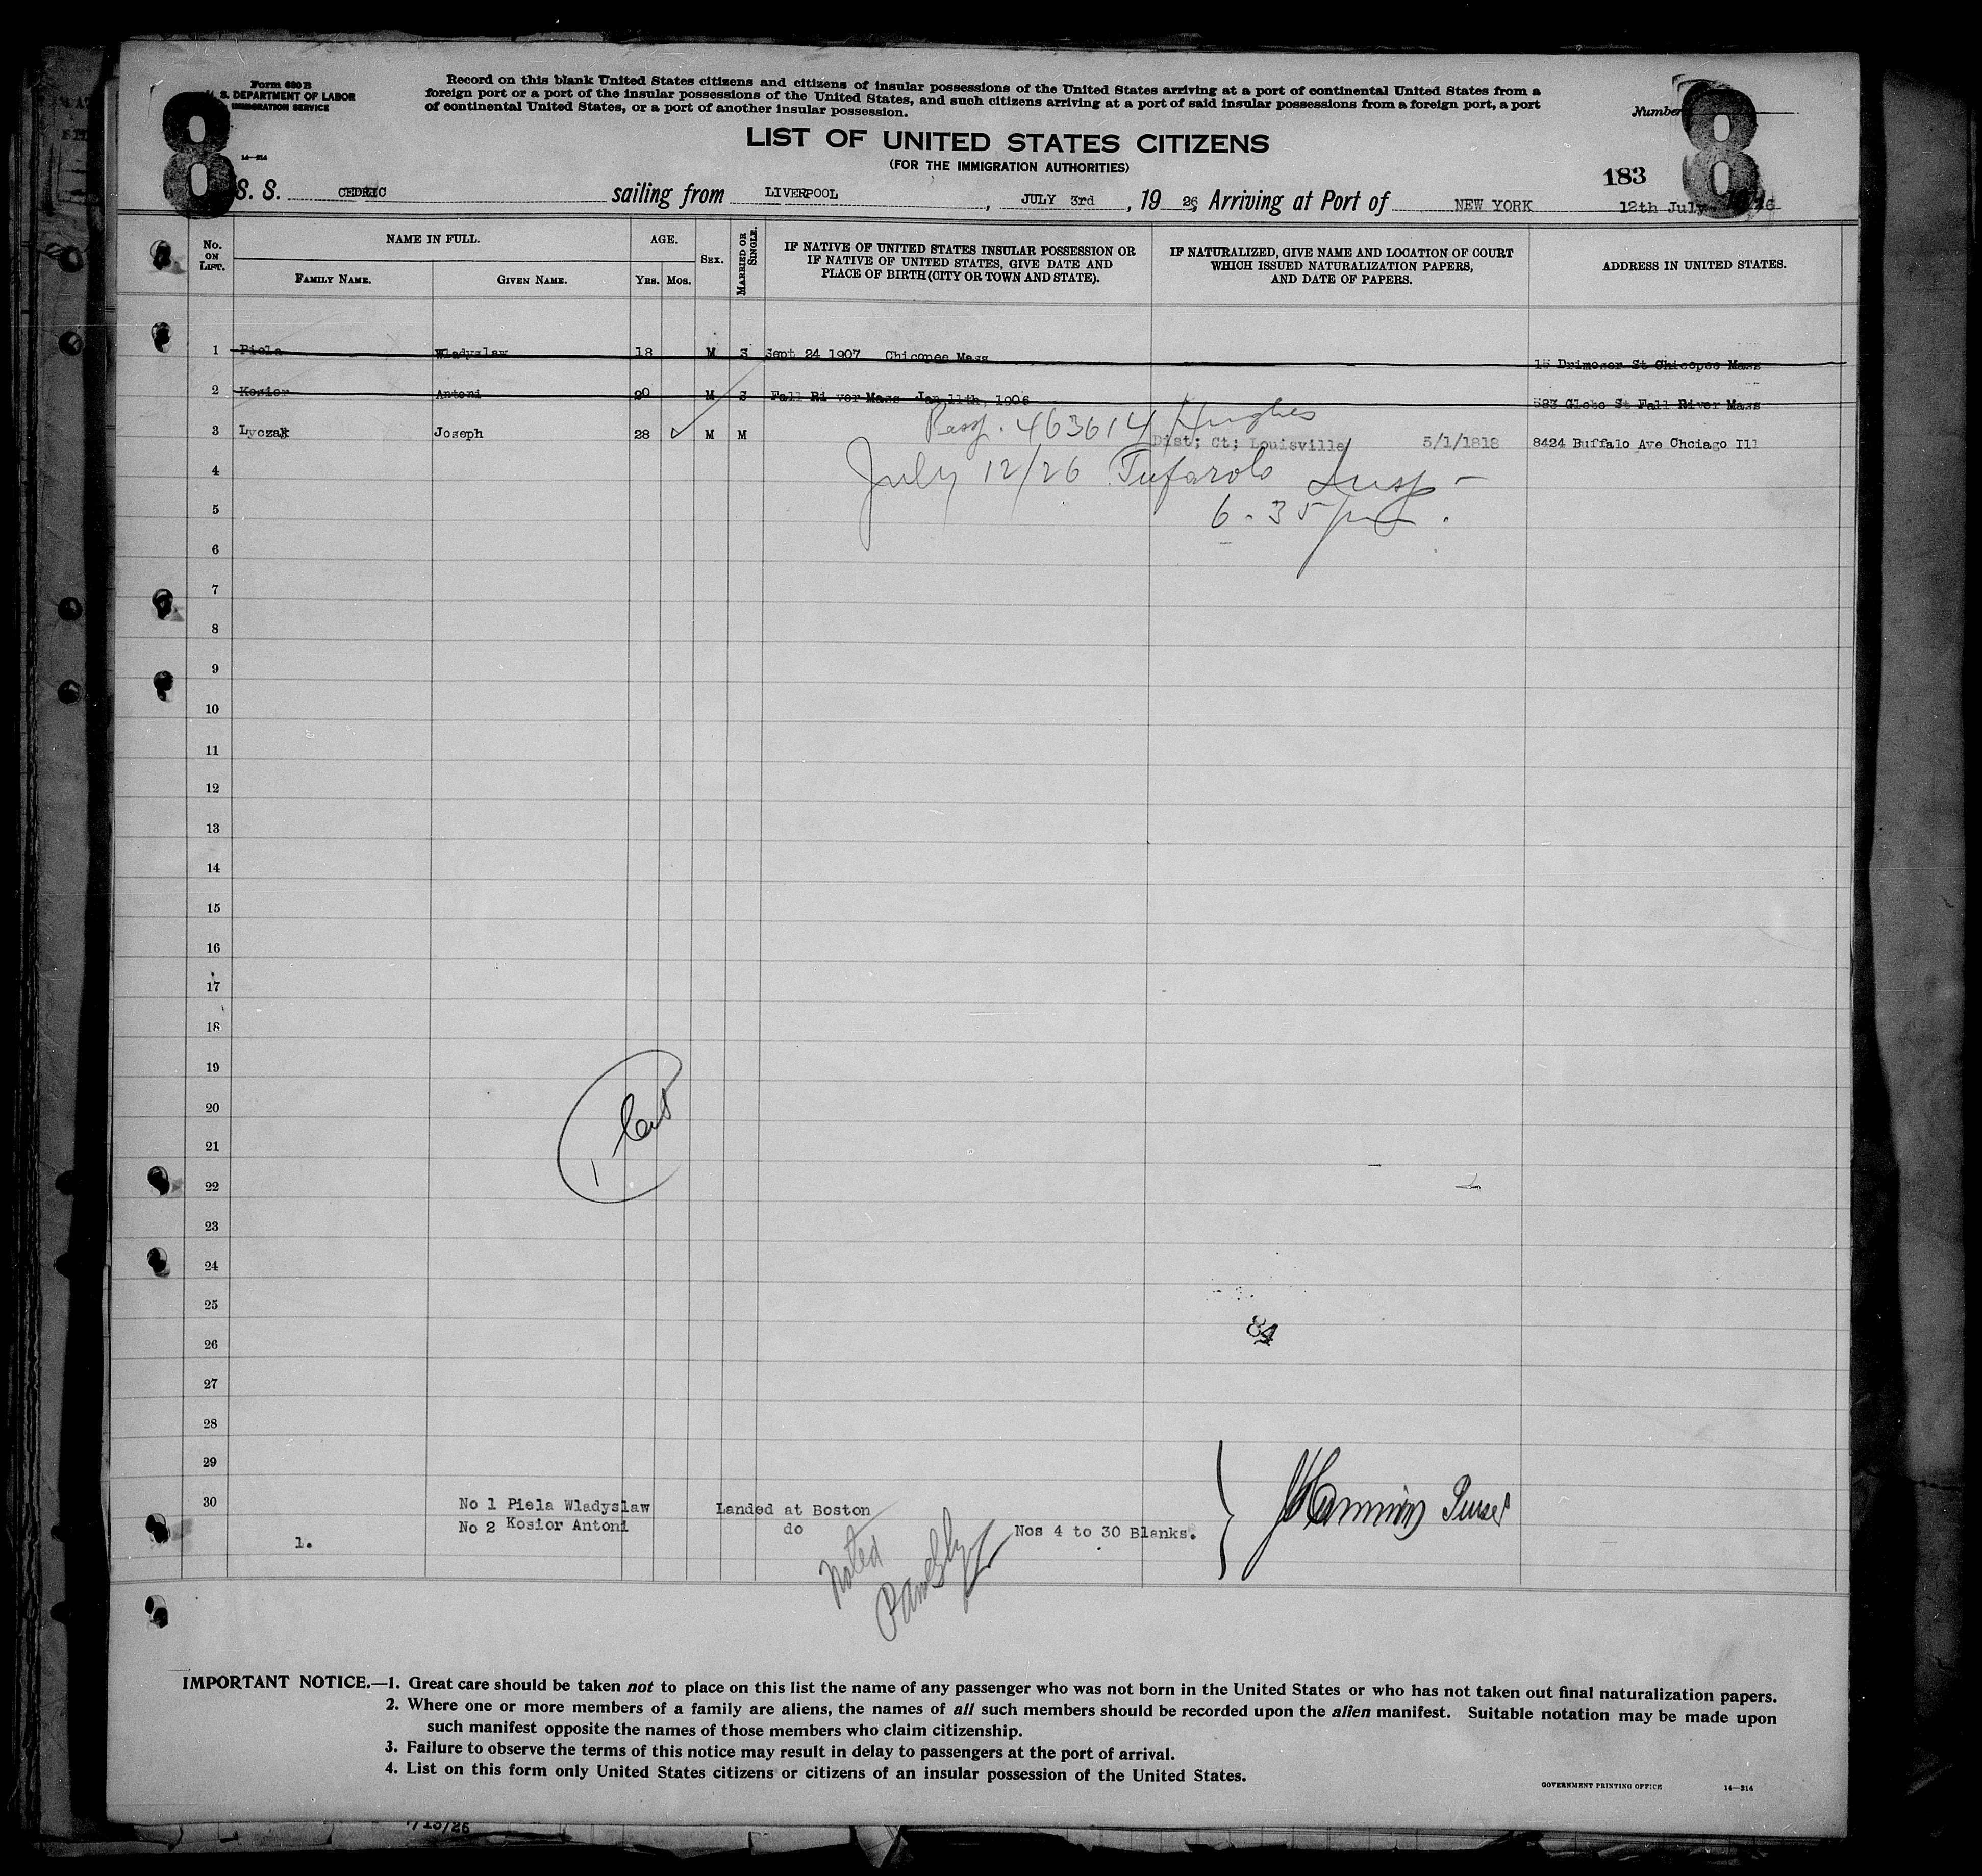 Form 630 B
U. S. DEPARTMENT OF LABOR
IMMIGRATION SERVICE
14—214
8
Record on this blank United States citizens and citizens of insular possessions of the United States arriving at a port of continental United States from a
foreign port or a port of the insular possessions of the United States, and such citizens arriving at a port of said insular possessions from a foreign port, a port
of continental United States, or a port of another insular possession.
Number
8
LIST OF UNITED STATES CITIZENS
(FOR THE IMMIGRATION AUTHORITIES)
183
S. S. CEDRIC sailing from LIVERPOOL, JULY 3rd, 1926, Arriving at Port of NEW YORK 12th July
No. ON LIST.
NAME IN FULL.
FAMILY NAME.
GIVEN NAME.
AGE.
YRS. MOS.
SEX.
MARRIED OR SINGLE.
IF NATIVE OF UNITED STATES INSULAR POSSESSION OR
IF NATIVE OF UNITED STATES, GIVE DATE AND
PLACE OF BIRTH (CITY OR TOWN AND STATE).
IF NATURALIZED, GIVE NAME AND LOCATION OF COURT
WHICH ISSUED NATURALIZATION PAPERS,
AND DATE OF PAPERS.
ADDRESS IN UNITED STATES.
1 Piela Wladyslaw 18 M S Sept 24 1907 Chicopee Mass 15 Drimoser St Chicopee Mass
2 Kosior Antoni 20 M S Fall Ri ver Mass Jan 11th, 1906 583 Globe St Fall River Mass
Pass. 463614 Hughes
3 Lyczak Joseph 28 M M Dist; Ct; Louisville 5/1/1818 8424 Buffalo Ave Chciago Ill
4 July 12/26 Tufarolo Susp -
5 6.35 pm.
6
7
8
9
10
11
12
13
14
15
16
17
18
19
20
21
22
23
24
25
26
27
28
29
30
84
No 1 Piela Wladyslaw Landed at Boston
No 2 Kosior Antoni do
1.
Nos 4 to 30 Blanks.
Purser
Noted
IMPORTANT NOTICE.—1. Great care should be taken not to place on this list the name of any passenger who was not born in the United States or who has not taken out final naturalization papers.
2. Where one or more members of a family are aliens, the names of all such members should be recorded upon the alien manifest. Suitable notation may be made upon
such manifest opposite the names of those members who claim citizenship.
3. Failure to observe the terms of this notice may result in delay to passengers at the port of arrival.
4. List on this form only United States citizens or citizens of an insular possession of the United States.
GOVERNMENT PRINTING OFFICE 14—214
7/13/26